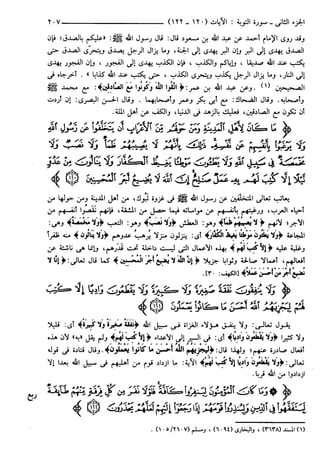 الجزء الثاني - سورة التوبة : الآيات (١٢٠ - ١٢٢)
٢٠٧
وقد روى الإمام أحمد عن عبد الله بن مسعود قال: قال رسول الله ﷺ: «عليكم بالصدق؛ فإن
الصدق يهدي إلى البر وإن البر يهدي إلى الجنة، وما يزال الرجل يصدق ويتحرّى الصدق حتى
يكتب عند الله صديقا، وإياكم والكذب، فإن الكذب يهدي إلى الفجور، وإن الفجور يهدي
إلى النار، وما يزال الرجل يكذب ويتحرى الكذب، حتى يكتب عند الله كذابا». أخرجاه في
الصحيحين (١). وعن عبد الله بن عمر: ﴿اتَّقُوا اللَّهَ وَكُونُوا مَعَ الصَّادِقِينَ﴾: مع محمد ﷺ
وأصحابه. وقال الضحاك: مع أبي بكر وعمر وأصحابهما. وقال الحسن البصري: إن أردت
أن تكون مع الصادقين، فعليك بالزهد في الدنيا، والكف عن أهل الملة.
﴿مَا كَانَ لِأَهْلِ الْمَدِينَةِ وَمَنْ حَوْلَهُم مِّنَ الْأَعْرَابِ أَن يَتَخَلَّفُوا عَن رَّسُولِ اللَّهِ
وَلَا يَرْغَبُوا بِأَنفُسِهِمْ عَن نَّفْسِهِ ذَٰلِكَ بِأَنَّهُمْ لَا يُصِيبُهُمْ ظَمَأٌ وَلَا نَصَبٌ وَلَا
مَخْمَصَةٌ فِي سَبِيلِ اللَّهِ وَلَا يَطَئُونَ مَوْطِئًا يَغِيظُ الْكُفَّارَ وَلَا يَنَالُونَ مِنْ عَدُوٍّ
نَّيْلًا إِلَّا كُتِبَ لَهُم بِهِ عَمَلٌ صَالِحٌ إِنَّ اللَّهَ لَا يُضِيعُ أَجْرَ الْمُحْسِنِينَ
يعاتب تعالى المتخلفين عن رسول الله ﷺ في غزوة تبوك، من أهل المدينة ومن حولها من
أحياء العرب، ورغبتهم بأنفسهم عن مواساته فيما حصل من المشقة، فإنهم نَقَصُوا أنفسهم من
الأجر؛ لأنهم ﴿لَا يُصِيبُهُمْ ظَمَأٌ﴾ وهو: العطش ﴿وَلَا نَصَبٌ﴾ وهو: التعب ﴿وَلَا مَخْمَصَةٌ﴾ وهي:
المجاعة ﴿وَلَا يَطَئُونَ مَوْطِئًا يَغِيظُ الْكُفَّارَ﴾ أي: ينزلون منزلا يُرهبُ عدوهم ﴿وَلَا يَنَالُونَ﴾ منه ظفراً
وغلبة عليه ﴿إِلَّا كُتِبَ لَهُم﴾ بهذه الأعمال التي ليست داخلة تحت قدرهم، وإنما هي ناشئة عن
أفعالهم، أعمالا صالحة وثوابا جزيلا ﴿إِنَّ اللَّهَ لَا يُضِيعُ أَجْرَ الْمُحْسِنِينَ﴾ كما قال تعالى: ﴿إِنَّا لَا
نُضِيعُ أَجْرَ مَنْ أَحْسَنَ عَمَلًا﴾ [الكهف: ٣٠].
﴿وَلَا يُنفِقُونَ نَفَقَةً صَغِيرَةً وَلَا كَبِيرَةً وَلَا يَقْطَعُونَ وَادِيًا إِلَّا كُتِبَ
لَهُمْ لِيَجْزِيَهُمُ اللَّهُ أَحْسَنَ مَا كَانُوا يَعْمَلُونَ
يقول تعالى: ولا ينفق هؤلاء الغزاة في سبيل الله ﴿نَفَقَةً صَغِيرَةً وَلَا كَبِيرَةً﴾ أي: قليلا
ولا كثيرا ﴿وَلَا يَقْطَعُونَ وَادِيًا﴾ أي: في السير إلى الأعداء ﴿إِلَّا كُتِبَ لَهُمْ﴾ ولم يقل «به» لأن هذه
أفعال صادرة عنهم؛ ولهذا قال: ﴿لِيَجْزِيَهُمُ اللَّهُ أَحْسَنَ مَا كَانُوا يَعْمَلُونَ﴾. وقال قتادة في قوله
تعالى: ﴿وَلَا يَقْطَعُونَ وَادِيًا إِلَّا كُتِبَ لَهُمْ﴾ الآية: ما ازداد قوم من أهليهم في سبيل الله بعدا إلا
ازدادوا من الله قربا.
﴿وَمَا كَانَ الْمُؤْمِنُونَ لِيَنفِرُوا كَافَّةً فَلَوْلَا نَفَرَ مِن كُلِّ فِرْقَةٍ مِّنْهُمْ طَائِفَةٌ
لِّيَتَفَقَّهُوا فِي الدِّينِ وَلِيُنذِرُوا قَوْمَهُمْ إِذَا رَجَعُوا إِلَيْهِمْ لَعَلَّهُمْ يَحْذَرُونَ
ربع
(١) المسند (٣٦٣٨)، والبخاري (٦٠٩٤)، ومسلم (١٠٥/٢٦٠٧).